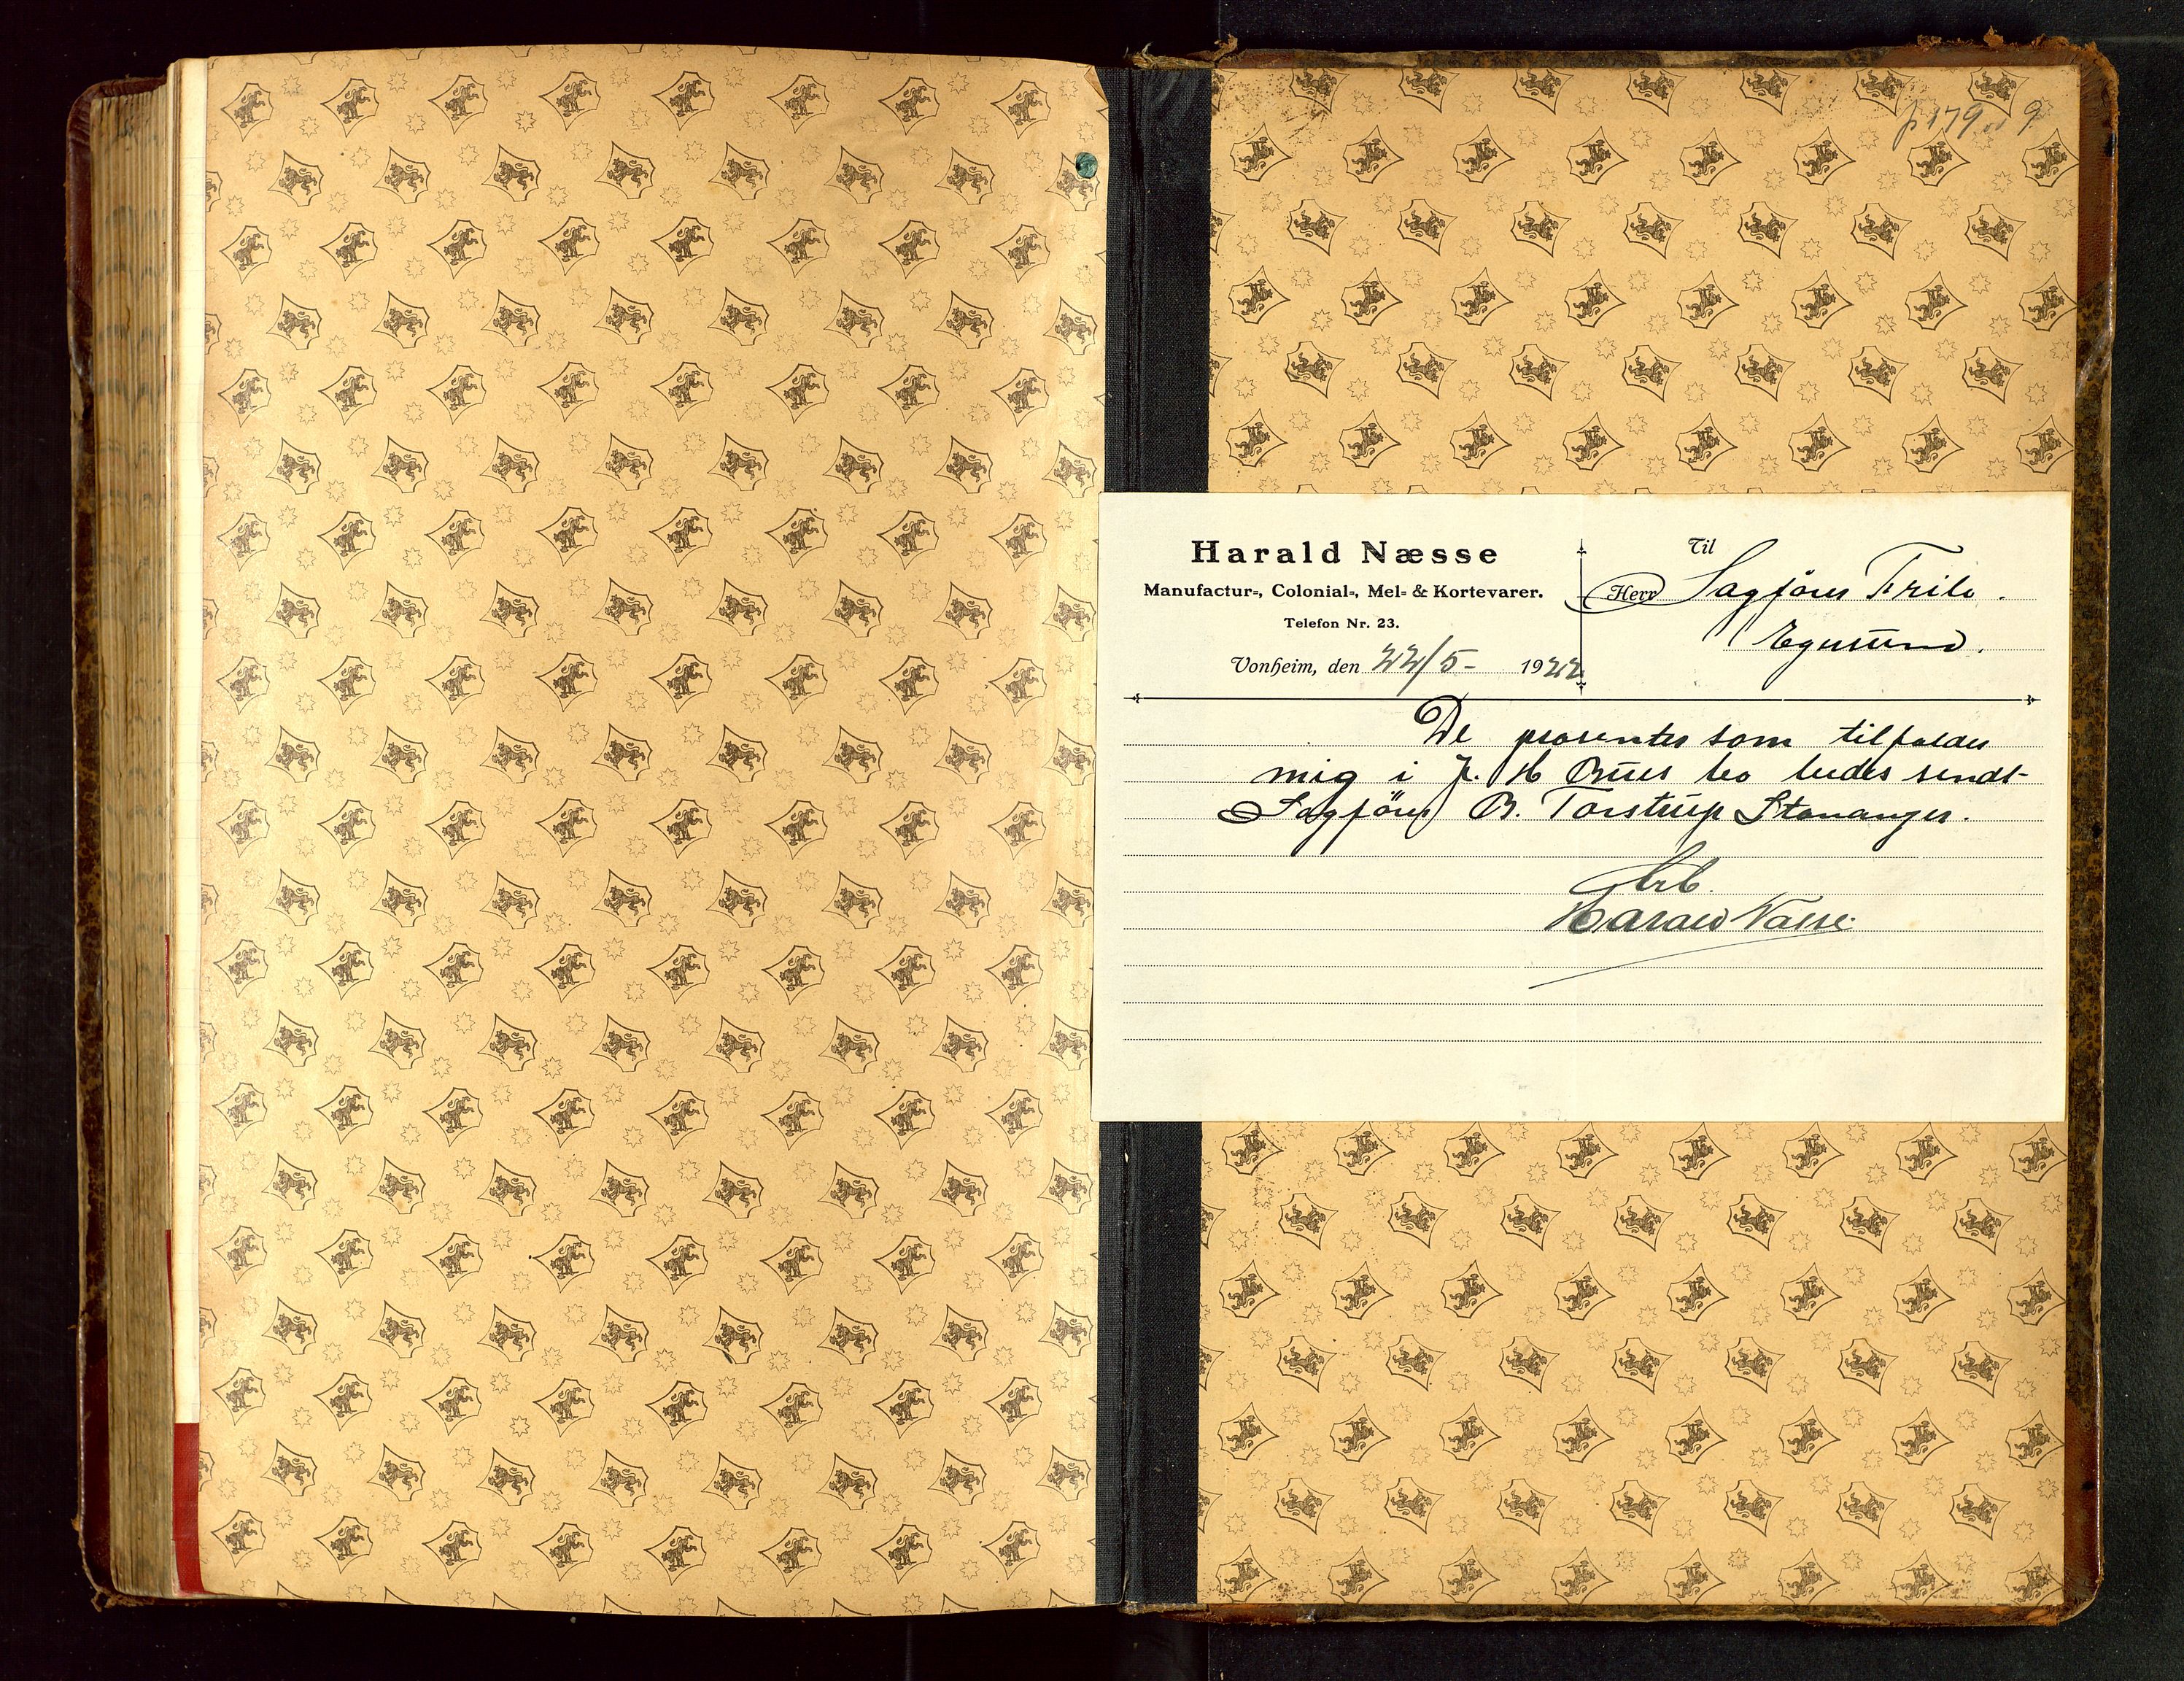 p 179 9
Harald Næsse
Manufactur-, Colonial-, Mel- & Kortevarer.
Telefon Nr. 23.
Vonheim, den 22/5- 1922
Til
Herr Sagfører
Egersund.
De prosenter som tilfalder
mig i J. H Bues bo bedes sendt
Sagfører B. Torstrup Stavanger.
Ærb.
Harald Næsse